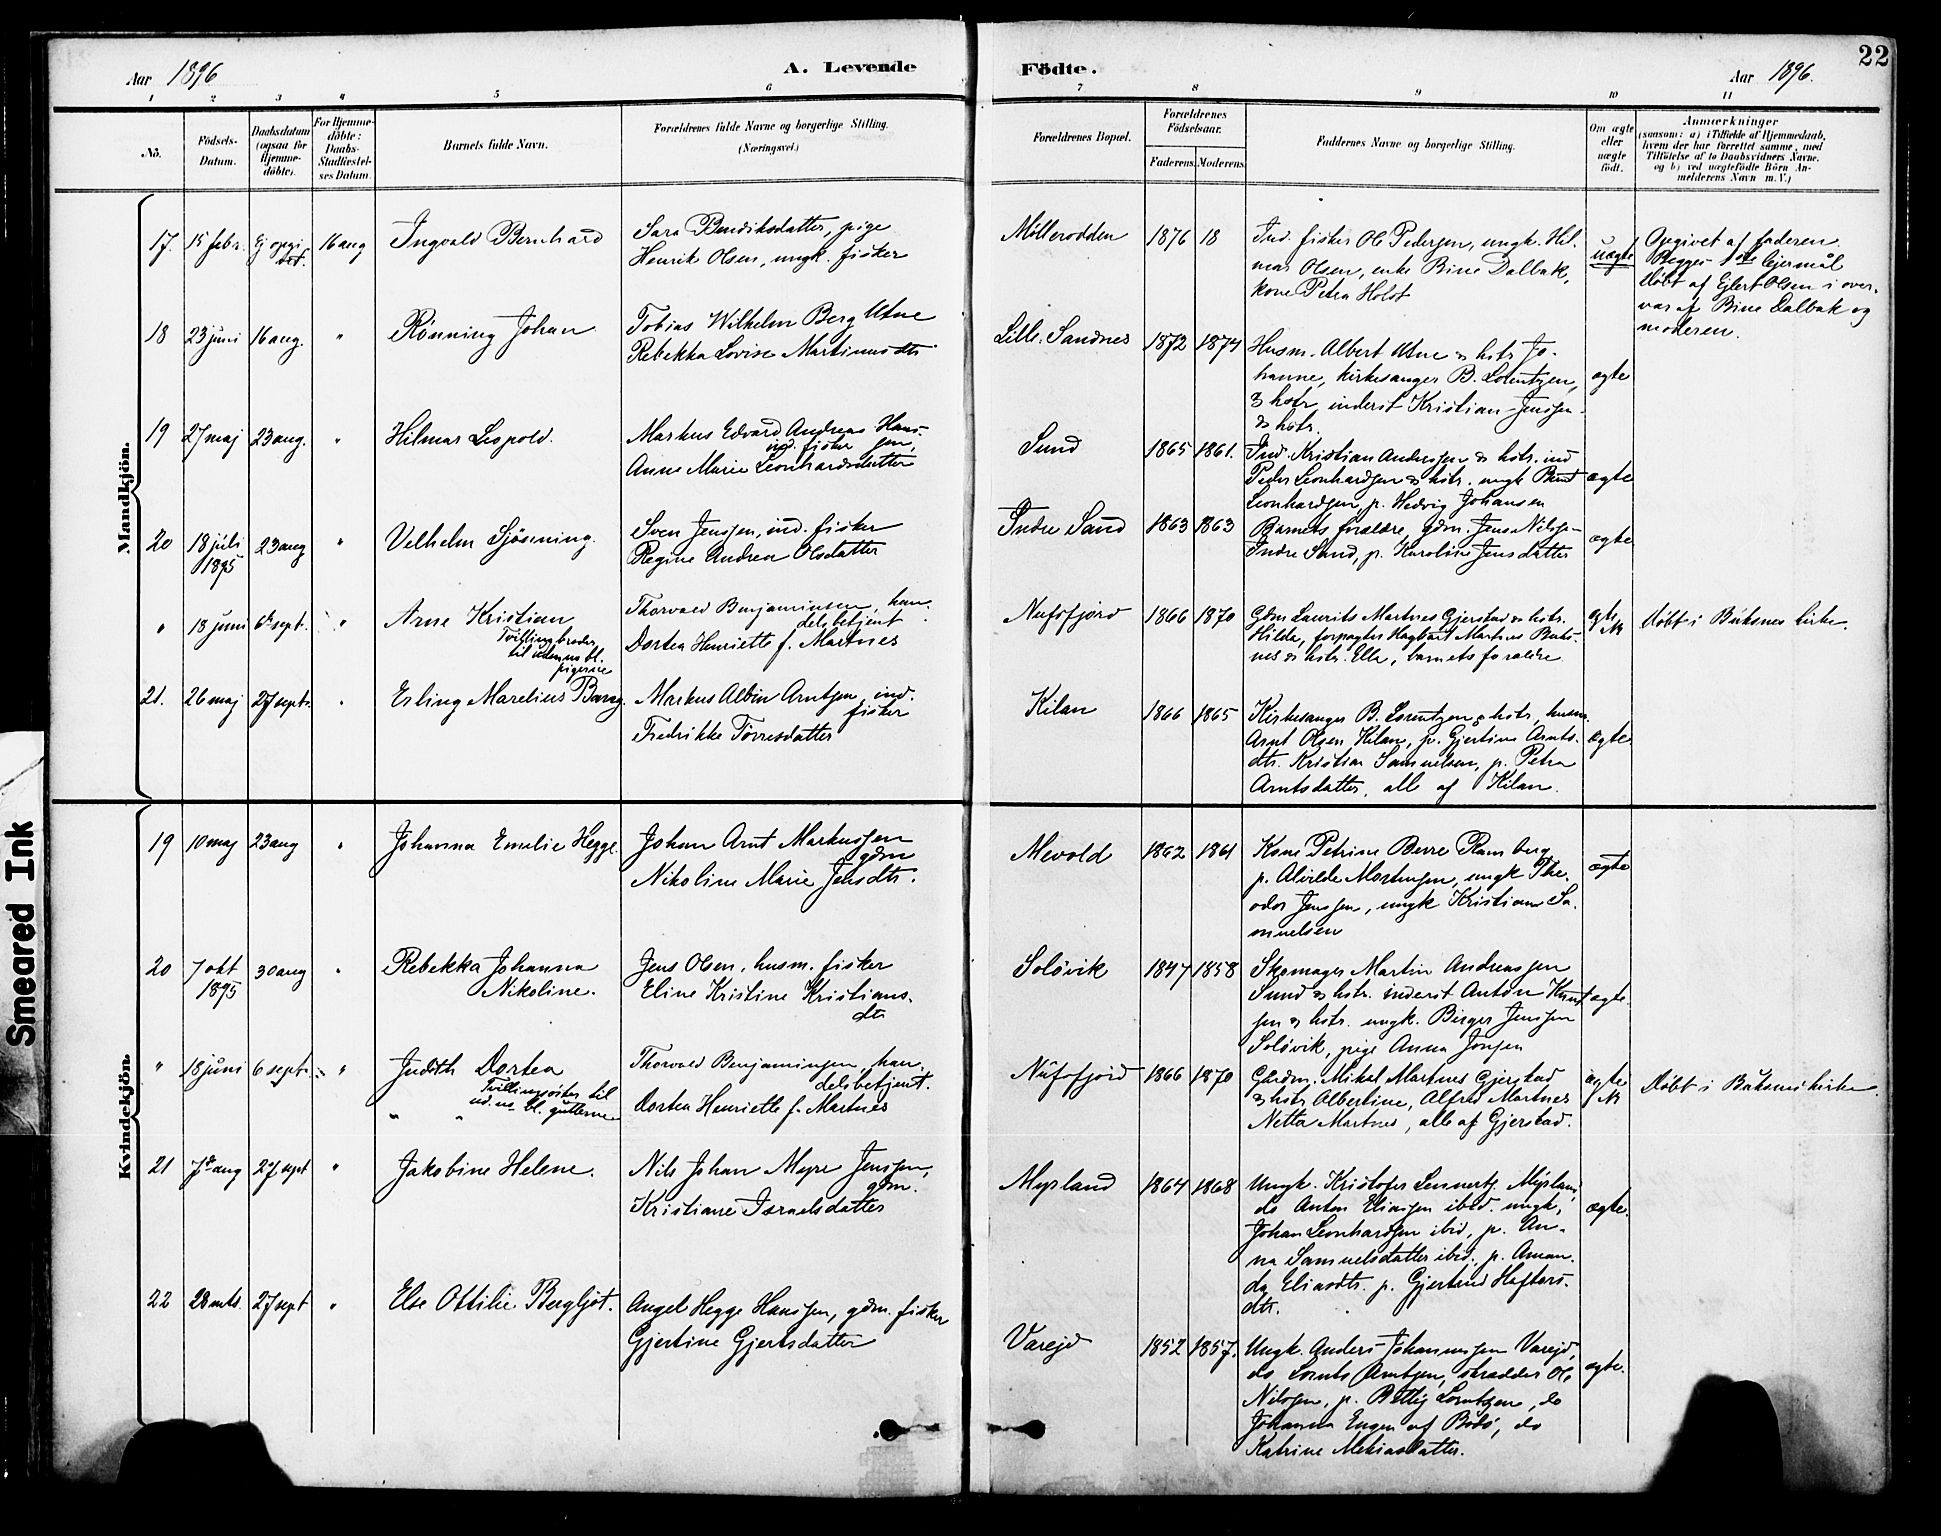 22
Aar 1896
A. Levende
Födte.
Aar 1896.
1 2 3 4 5 6 7 8 9 10 11
No.
Födsels-
Datum.
Daabsdatum
(ogsaa for
Hjemme-
döbte).
For Hjemme-
döbte:
Daabs-
Stadfæstel-
ses Datum.
Barnets fulde Navn.
Forældrenes fulde Navne og borgerlige Stilling.
(Næringsvei.)
Forældrenes Bopæl.
Forældrenes
Födselsaar.
Faderens. Moderens.
Faddernes Navne og borgerlige Stilling.
Om ægte
eller
uægte
født.
Anmærkninger
(saasom: a) i Tilfælde af Hjemmedaab,
hvem der har forrettet samme, med
Tilföielse af to Daabsvidners Navne,
og b) ved uægtefödte Börn An-
melderens Navn m. V.)
Mandkjön.
17. 15 febr. Ej opgi-
vet. 16 aug Ingvald Bernhard
Sara Bendiksdatter, pige
Henrik Olsen, ungk. fisker
Möllerodden 1876 18
Ind. fisker Ole Pedersen, ungk. Hel-
mer Olsen, enke Bine Dalbak,
kone Petra Holst
uægte
Opgivet af faderen.
Begges 1ste lejermål
Döbt af Ejlert Olsen i over-
vær af Bine Dalbak og
moderen.
18 23 juni 16 aug. " Rönning Johan
Tobias Wilhelm Berg Utne
Rebekka Lovise Martinusdtr
Lille Sandnes 1872 1874
Husm. Albert Utne & hstr. Jo-
hanne, kirkesanger B. Lorentzen,
& hstr, inderst Kristian Jenssen
& hstr.
ægte
19 27 maj 23 aug. " Hilmar Leopold.
Markus Edvard Andreas Hans-
sen, ind. fisker
Anne Marie Leonhardsdatter
Sund 1865 1861.
Ind. Kristian Anderssen & hstr. ind
Peder Leonhardsen & hstr. ungk
Leonhardsen, p. Hedvig Johansen
ægte
20 18 juli
1895 23 aug " Velhelm Sjösening.
Sven Jenssen, ind. fisker
Regine Andrea Olsdatter
Indre Sand 1863 1863
Barnets forældre, gdm. Jens Nilssen
Indre Sand, p. Karoline Jensdatter
ægte
" 18 juni 6te sept. " Arne Kristian
Tvillingbroder
til uden no bl.
pigerne
Thorvald Benjaminsen, han-
delsbetjent
Dortea Henriette f. Martnes
Nufsfjord 1866 1870
Gdm Laurits Martnes Gjerstad & hstr.
Hilda, forpagter Hagbart Martnes Buks-
nes & hstr. Ella, barnets forældre
ægte
Döbt i Buksnes kirke.
21. 26 maj 27 sept. " Erling Marelius Barng.
Markus Albin Arntsen, ind.
fisker
Fredrikke Törresdatter
Kilan 1866 1865
Kirkesanger B. Lorentzen & hstr, husm.
Arnt Olsen Kilan, p. Gjertine Arnts-
dtr. Kristian Samuelsen, p. Petra
Arntsdatter, alle af Kilan.
ægte
Kvindekjön.
19 10 maj 23 aug " Johanna Emelie Hegge.
Johan Arnt Markussen
gdm
Nikoline Marie Jensdtr.
Mevold 1862 1861
Kone Petrine Berre Ramberg
p. Alvilde Mortensen, ungk The-
odor Jenssen, ungk Kristian Sa-
muelsen
ægte
20 7 okt
1895 30 aug " Rebekka Johanna
Nikoline.
Jens Olsen, husm. fisker
Eline Kristine Kristians-
dtr
Solövik 1847 1858
Skomager Martin Andreassen
Sund & hstr. inderst Anton Knut-
sen & hstr. ungk. Birger Jenssen
Solövik, pige Anna Jonsen
ægte.
" 18 juni 6 sept. " Judith Dortea
Tvillingsöster til
ud. no bl. gutterne
Thorvald Benjaminsen, han-
delsbetjent.
Dortea Henriette f. Martnes
Nufsfjord 1866 1870
Gårdm. Mikal Martnes Gjerstad
& hstr Albertine, Alfred Martnes
Netta Martnes, alle af Gjerstad.
ægte
Döbt i Buksnes kirke.
21 7de aug 27 sept " Jakobine Helene.
Nils Johan Myre Jenssen,
gdm.
Kristiane Israelsdatter
Myrland 1864 1868
Ungk. Kristofer Lennertz Myrland,
do Anton Eliassen ibid. ungk,
Johan Leonhardsen ibid, p. An-
na Samuelsdatter ibid. p. Aman-
da Eliasdtr. p. Gjertrud Hafters-
dtr.
ægte.
22 28 mts. 27 sept " Else Ottilie Bergljot.
Angel Hegge Hanssen, gdm. fisker
Gjertine Gjertsdatter
Varejd 1852 1857.
Ungk. Anders Johannessen Varejd,
do Lornts Arntsen, skrædder Ole
Nilssen, p. Betty Lorntzen, do
Johanna Engen af Bodö, do
Katrine Mekiasdatter.
ægte.
Smeared Ink